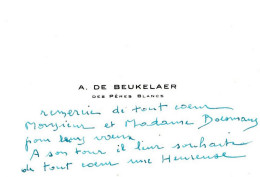 A. DE BEUKELAER
DES PÈRES BLANCS
remercie de tout cœur
Monsieur et Madame
pour leurs vœux.
A son tour il leur souhaite
de tout cœur une Heureuse